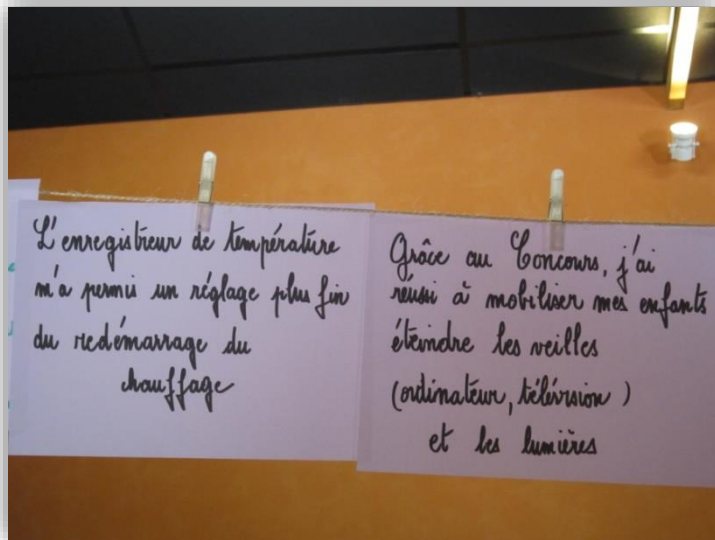 L'enregistreur de température
m'a permis un réglage plus fin
du redémarrage du
chauffage
Grâce au Concours, j'ai
réussi à mobiliser mes enfants
éteindre les veilles
(ordinateur, télévision)
et les lumières